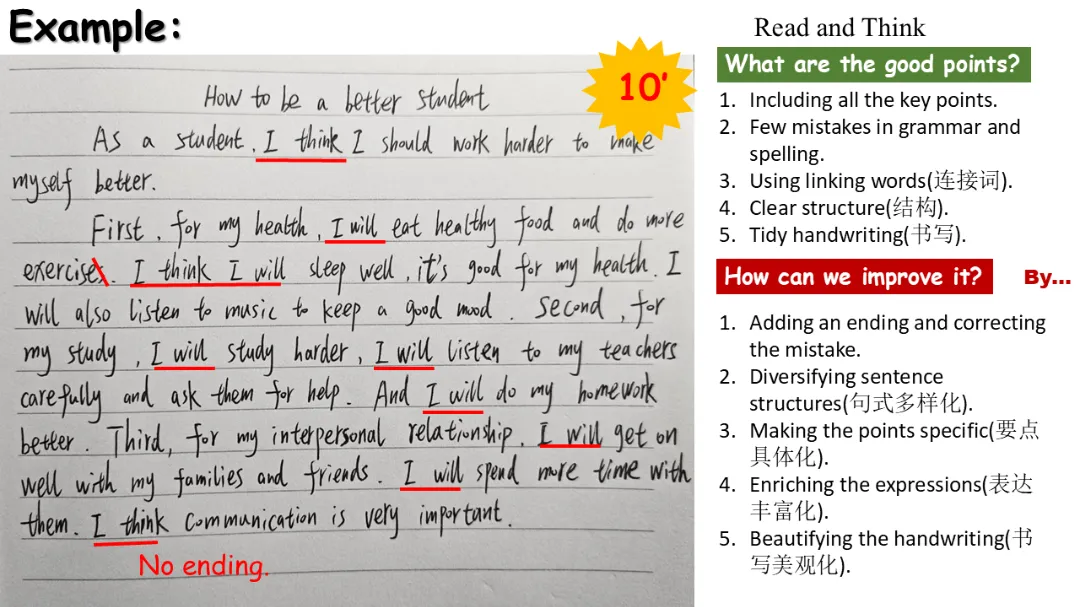 Example:
10'
How to be a better student
As a student, I think I should work harder to make
myself better.
First, for my health, I will eat healthy food and do more
exercises. I think I will sleep well, it's good for my health. I
will also listen to music to keep a good mood. Second, for
my study, I will study harder, I will listen to my teachers
carefully and ask them for help. And I will do my homework
better. Third, for my interpersonal relationship, I will get on
well with my families and friends. I will spend more time with
them. I think communication is very important.
No ending.
Read and Think
What are the good points?
1. Including all the key points.
2. Few mistakes in grammar and
spelling.
3. Using linking words(连接词).
4. Clear structure(结构).
5. Tidy handwriting(书写).
How can we improve it? By...
1. Adding an ending and correcting
the mistake.
2. Diversifying sentence
structures(句式多样化).
3. Making the points specific(要点
具体化).
4. Enriching the expressions(表达
丰富化).
5. Beautifying the handwriting(书
写美观化).